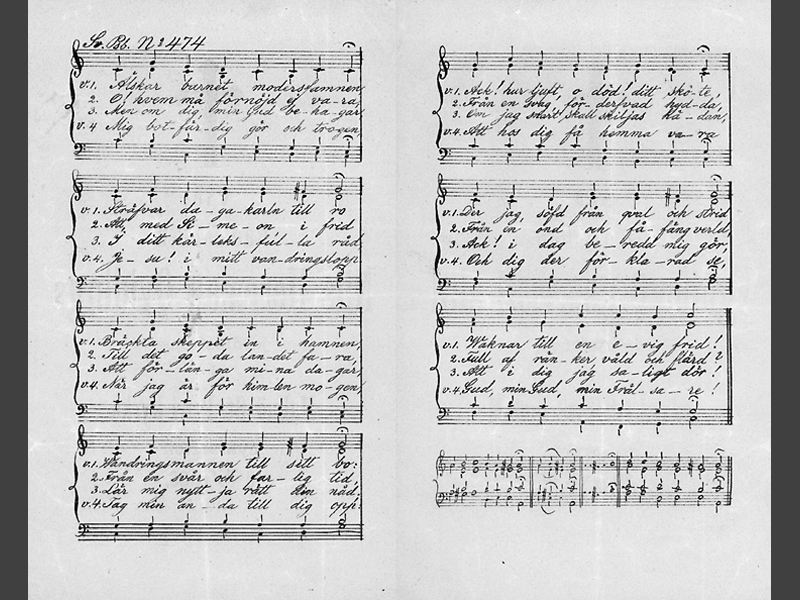 Sv. Ps. No 474
v.1. Älskar barnet modersfamnen,
2. O! hvem må förnöjd ej va-ra,
3. Men om dig, min Gud be-ha-gar,
v.4 Mig bot-fär-dig gör och trogen,
v.1. Sträfvar da-ga-karln till ro
2. Att, med Si-me-on i frid
3. I ditt kär-leks-ful-la råd
v.4. Je-su! i mitt van-dringslopp
v.1. Bräckta skeppet in i hamnen,
2. Till det go-da lan-det fa-ra,
3. Att för-län-ga mi-na da-gar,
v.4. När jag är för him-len mo-gen,
v.1. Wandringsmannen till sitt bo:
2. Från en svår och far-lig tid,
3. Lär mig nytt-ja rätt din nåd,
v.4. Tag min an-da till dig opp.
v.1. Ack! hur ljuft, o död! ditt skö-te,
2. Från en förderfvad hyd-da,
3. Om jag snart skall skiljas hä-dan,
v.4. Att hos dig få hemma va-ra
v.1. Der jag, söfd från qval och strid
2. Från en ond och få-fäng verld,
3. Ack! i dag be-redd mig gör,
v.4. Och dig der för-kla-rad se,
v.1. Waknar till en e-vig frid!
2. Full af rän-ker, våld och flärd?
3. Att i dig jag sa-ligt dör!
v.4. Gud, min Gud, min Fräl-sa-re!